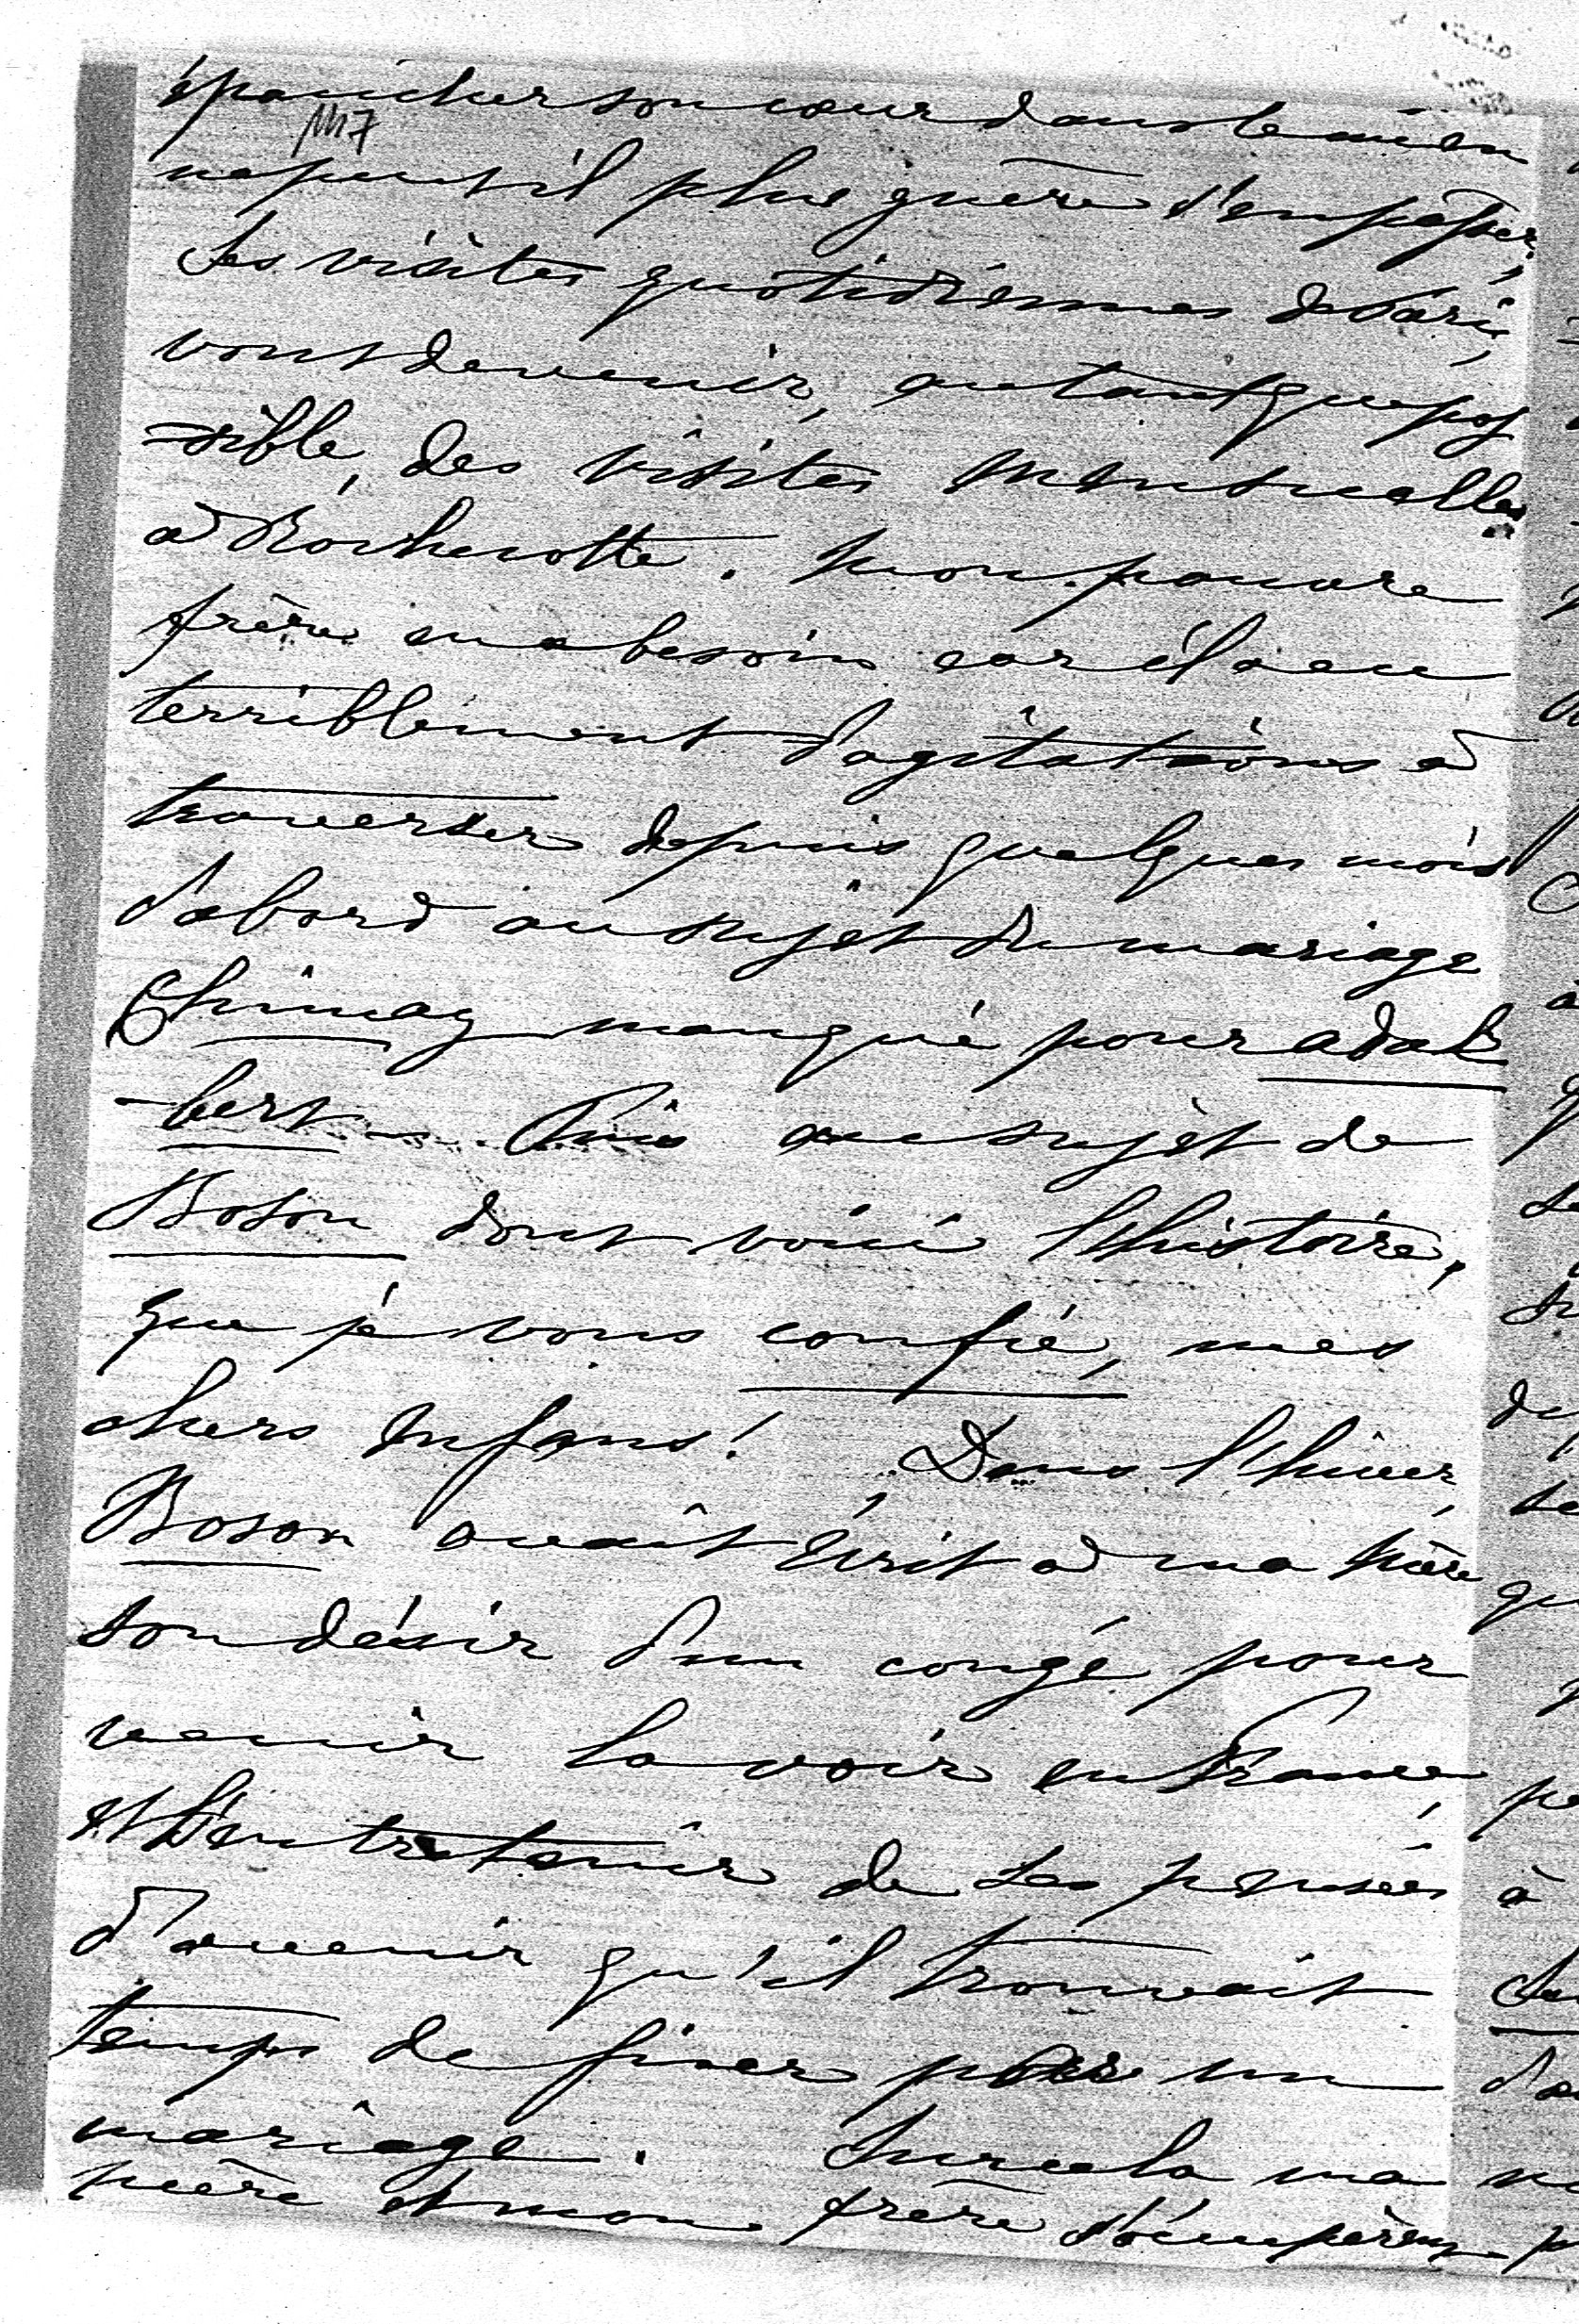 épancher son cœur dans le mien
1117
ne peut il plus guère s'en passer,
Les visites quotidiennes de Paris,
vont devenir, autant que pos
=sible, des visites mensuelles
à Rochecotte. Mon pauvre
frère en a besoin car il a eu
terriblement d'agitations à
traverser depuis quelques mois
d'abord au sujet du mariage
Chimay manqué pour Adal
-bert Puis au sujet de
Boson dont voici l'histoire,
que je vous confie, mes
chers enfans! Dans l'hiver,
Boson avait écrit à ma mère
son désir d'un congé pour
venir la voir en France,
et l'entretenir de ses pensées
d'avenir qu'il trouvait
temps de fixer par un
mariage. Sur cela ma
mère et mon frère s'occupèrent